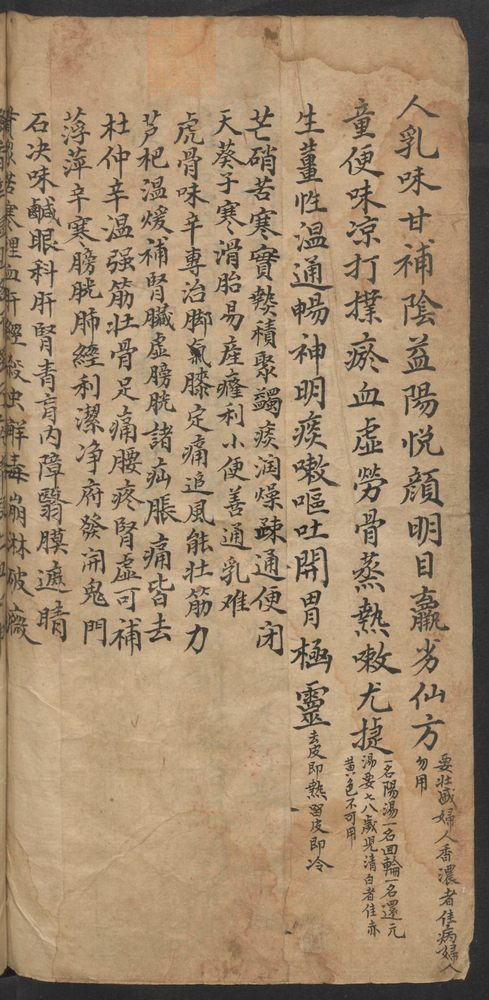 人乳味甘補陰益陽悅顏明目羸劣仙方
要壯盛婦人香濃者佳病婦人
勿用
童便味凉打撲瘀血虛勞骨蒸熱嗽尤捷
一名陽湯一名回輪一名還元
湯要七八歲児清白者佳赤
黄色不可用
生薑性温通暢神明痰嗽嘔吐開胃極靈
去皮即熱留皮即冷
芒硝苦寒實熱積聚蠲痰润燥疎通便闭
天葵子寒滑胎易産癃利小便善通乳难
虎骨味辛專治脚氣膝定痛追風能壯筋力
芦杷温煖補腎臟虛膀胱諸疝脹痛皆去
杜仲辛温强筋壯骨足痛腰疼腎虛可補
萍辛寒膀胱肺經利潔净府發汗鬼門
石决味鹹眼科肝腎青盲内障翳膜遮睛